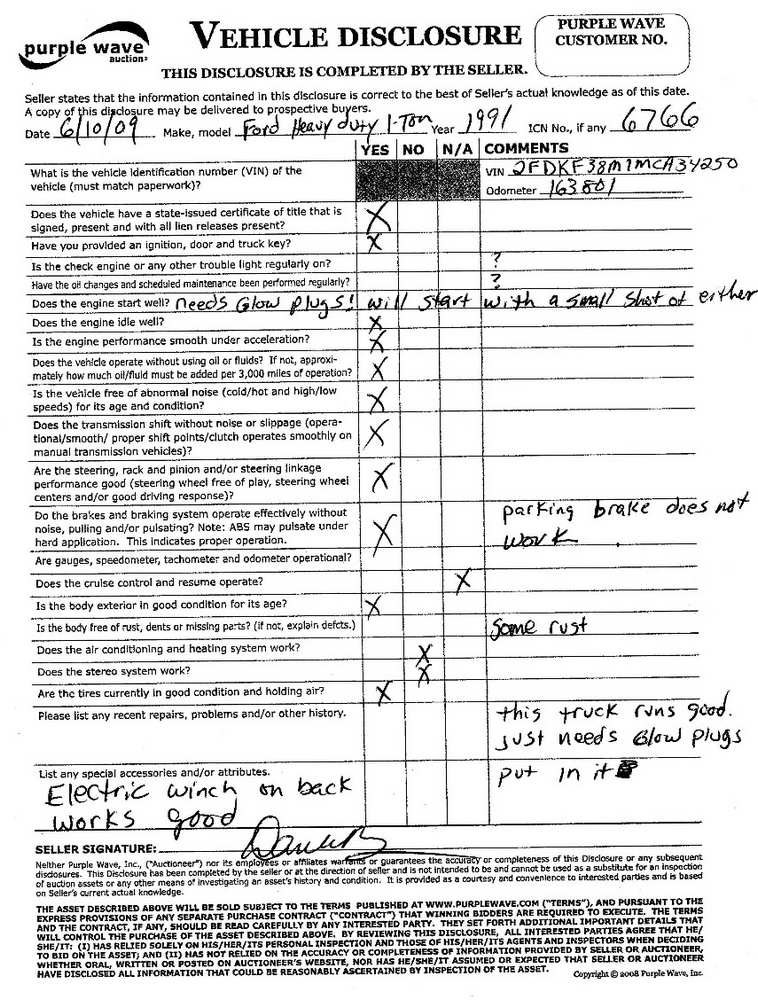 purple wave
auction®
VEHICLE DISCLOSURE
PURPLE WAVE
CUSTOMER NO.
THIS DISCLOSURE IS COMPLETED BY THE SELLER.
Seller states that the information contained in this disclosure is correct to the best of Seller's actual knowledge as of this date.
A copy of this disclosure may be delivered to prospective buyers.
Date 6/10/09 Make, model Ford Heavy duty 1-Ton Year 1991 ICN No., if any 6766
YES NO N/A COMMENTS
What is the vehicle identification number (VIN) of the VIN 2FDKF38M1MCA34250
vehicle (must match paperwork)? Odometer 163801
Does the vehicle have a state-issued certificate of title that is
signed, present and with all lien releases present? X
Have you provided an ignition, door and truck key? X
Is the check engine or any other trouble light regularly on? ?
Have the oil changes and scheduled maintenance been performed regularly? ?
Does the engine start well? needs Glow plugs! will start with a small shot of either
Does the engine idle well? X
Is the engine performance smooth under acceleration? X
Does the vehicle operate without using oil or fluids? If not, approxi-
mately how much oil/fluid must be added per 3,000 miles of operation? X
Is the vehicle free of abnormal noise (cold/hot and high/low
speeds) for its age and condition? X
Does the transmission shift without noise or slippage (opera-
tional/smooth/ proper shift points/clutch operates smoothly on X
manual transmission vehicles)?
Are the steering, rack and pinion and/or steering linkage
performance good (steering wheel free of play, steering wheel X
centers and/or good driving response)?
Do the brakes and braking system operate effectively without parking brake does not
noise, pulling and/or pulsating? Note: ABS may pulsate under X work
hard application. This indicates proper operation.
Are gauges, speedometer, tachometer and odometer operational?
Does the cruise control and resume operate? X
Is the body exterior in good condition for its age? X
Is the body free of rust, dents or missing parts? (if not, explain defcts.) Some rust
Does the air conditioning and heating system work? X
Does the stereo system work? X
Are the tires currently in good condition and holding air? X
Please list any recent repairs, problems and/or other history. this truck runs good.
just needs Glow plugs
put in it
List any special accessories and/or attributes.
Electric winch on back
works good
SELLER SIGNATURE:
Neither Purple Wave, Inc., ("Auctioneer") nor its employees or affiliates warrants or guarantees the accuracy or completeness of this Disclosure or any subsequent
disclosures. This Disclosure has been completed by the seller or at the direction of seller and is not intended to be and cannot be used as a substitute for an inspection
of auction assets or any other means of investigating an asset's history and condition. It is provided as a courtesy and convenience to interested parties and is based
on Seller's current actual knowledge.
THE ASSET DESCRIBED ABOVE WILL BE SOLD SUBJECT TO THE TERMS PUBLISHED AT WWW.PURPLEWAVE.COM ("TERMS"), AND PURSUANT TO THE
EXPRESS PROVISIONS OF ANY SEPARATE PURCHASE CONTRACT ("CONTRACT") THAT WINNING BIDDERS ARE REQUIRED TO EXECUTE. THE TERMS
AND THE CONTRACT, IF ANY, SHOULD BE READ CAREFULLY BY ANY INTERESTED PARTY. THEY SET FORTH ADDITIONAL IMPORTANT DETAILS THAT
WILL CONTROL THE PURCHASE OF THE ASSET DESCRIBED ABOVE. BY REVIEWING THIS DISCLOSURE, ALL INTERESTED PARTIES AGREE THAT HE/
SHE/IT: (I) HAS RELIED SOLELY ON HIS/HER/ITS PERSONAL INSPECTION AND THOSE OF HIS/HER/ITS AGENTS AND INSPECTORS WHEN DECIDING
TO BID ON THE ASSET; AND (II) HAS NOT RELIED ON THE ACCURACY OR COMPLETENESS OF INFORMATION PROVIDED BY SELLER OR AUCTIONEER,
WHETHER ORAL, WRITTEN OR POSTED ON AUCTIONEER'S WEBSITE, NOR HAS HE/SHE/IT ASSUMED OR EXPECTED THAT SELLER OR AUCTIONEER
HAVE DISCLOSED ALL INFORMATION THAT COULD BE REASONABLY ASCERTAINED BY INSPECTION OF THE ASSET.
Copyright © 2008 Purple Wave, Inc.